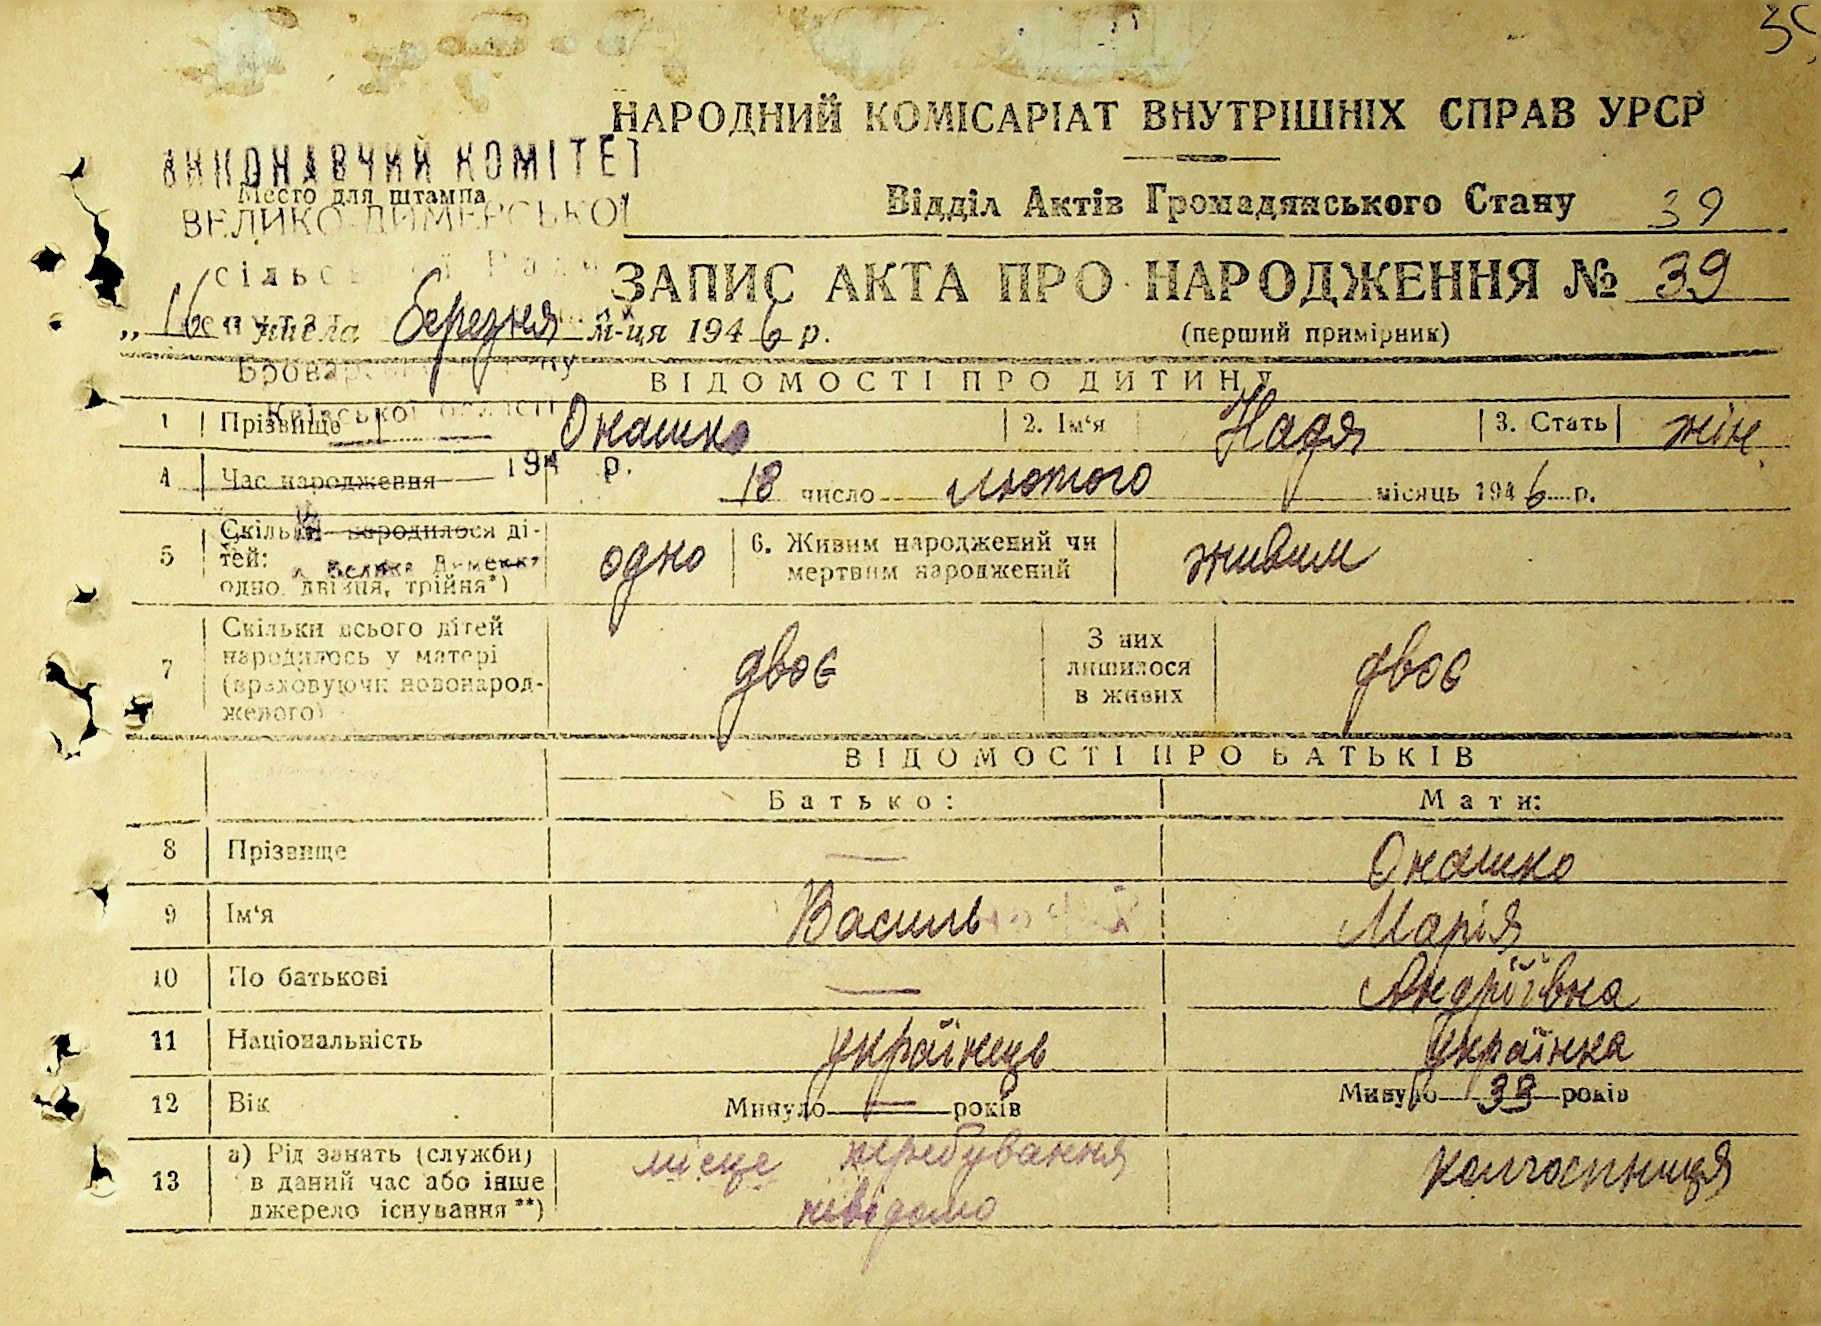 НАРОДНИЙ КОМІСАРІАТ ВНУТРІШНІХ СПРАВ УРСР
ВИКОНАВЧИЙ КОМІТЕТ
Место для штампа
ВЕЛИКО-ДИМЕРСЬКОЇ
Відділ Актів Громадянського Стану 39
ЗАПИС АКТА ПРО НАРОДЖЕННЯ № 39
„ 16 числа березня м-ця 1946 р.
(перший примірник)
ВІДОМОСТІ ПРО ДИТИНУ
Київської області
1 Прізвище Онашко 2. Ім'я Надя 3. Стать жін
194 р.
4 Час народження 18 число лютого місяць 1946 р.
5 Скільки народилося ді-
тей:
одно, двійня, трійня*) одно 6. Живим народжений чи
мертвим народжений живим
в. Велика Димерка
7 Скільки всього дітей
народилось у матері
(враховуючи новонарод-
женого) двоє З них
лишилося
в живих двоє
ВІДОМОСТІ ПРО БАТЬКІВ
Батько: Мати:
8 Прізвище — Онашко
9 Ім'я Василь Марія
10 По батькові — Андріївна
11 Національність українець українка
12 Вік Минуло — років Минуло 38 років
13 а) Рід занять (служби)
в даний час або інше
джерело існування**) місце перебування
невідомо колгоспниця